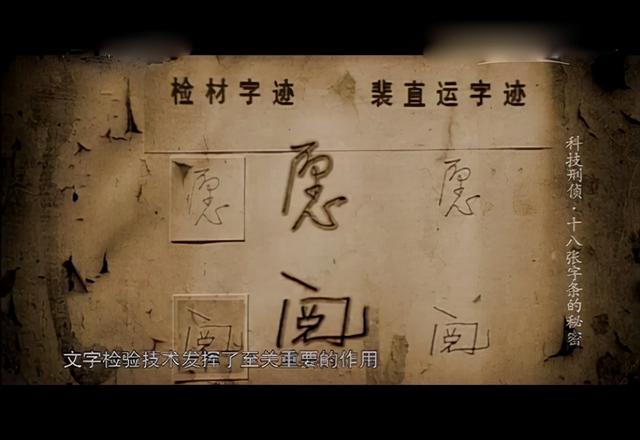 检材字迹 裴直运字迹
愿 愿 愿
阅 阅 阅
科技刑侦·十八张字条的秘密
文字检验技术发挥了至关重要的作用